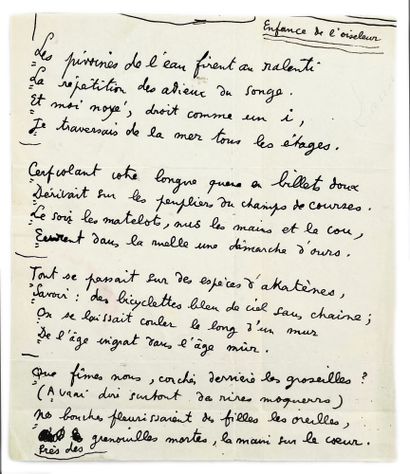 Enfance de l'oiseleur
Les pivoines de l'eau firent au ralenti
La répétition des adieux du songe.
Et moi noyé, droit comme un i,
Je traversais de la mer tous les étages.
Cerf volant votre longue queue en billets doux
Dérivait sur les peupliers du champs de courses.
Le soir les matelots, nus les mains et le cou,
Eurent dans la ruelle une démarche d'ours.
Tout se passait sur des espèces d'akatènes,
Savoir : des bicyclettes bleu de ciel sans chaine ;
On se laissait couler le long d'un mur
De l'âge ingrat dans l'âge mûr.
Que fîmes nous, cachés derrière les groseilles ?
(A vrai dire surtout des rires moqueurs)
Nos bouches fleurissaient des filles les oreilles,
grenouilles mortes, la main sur le cœur.
Près des